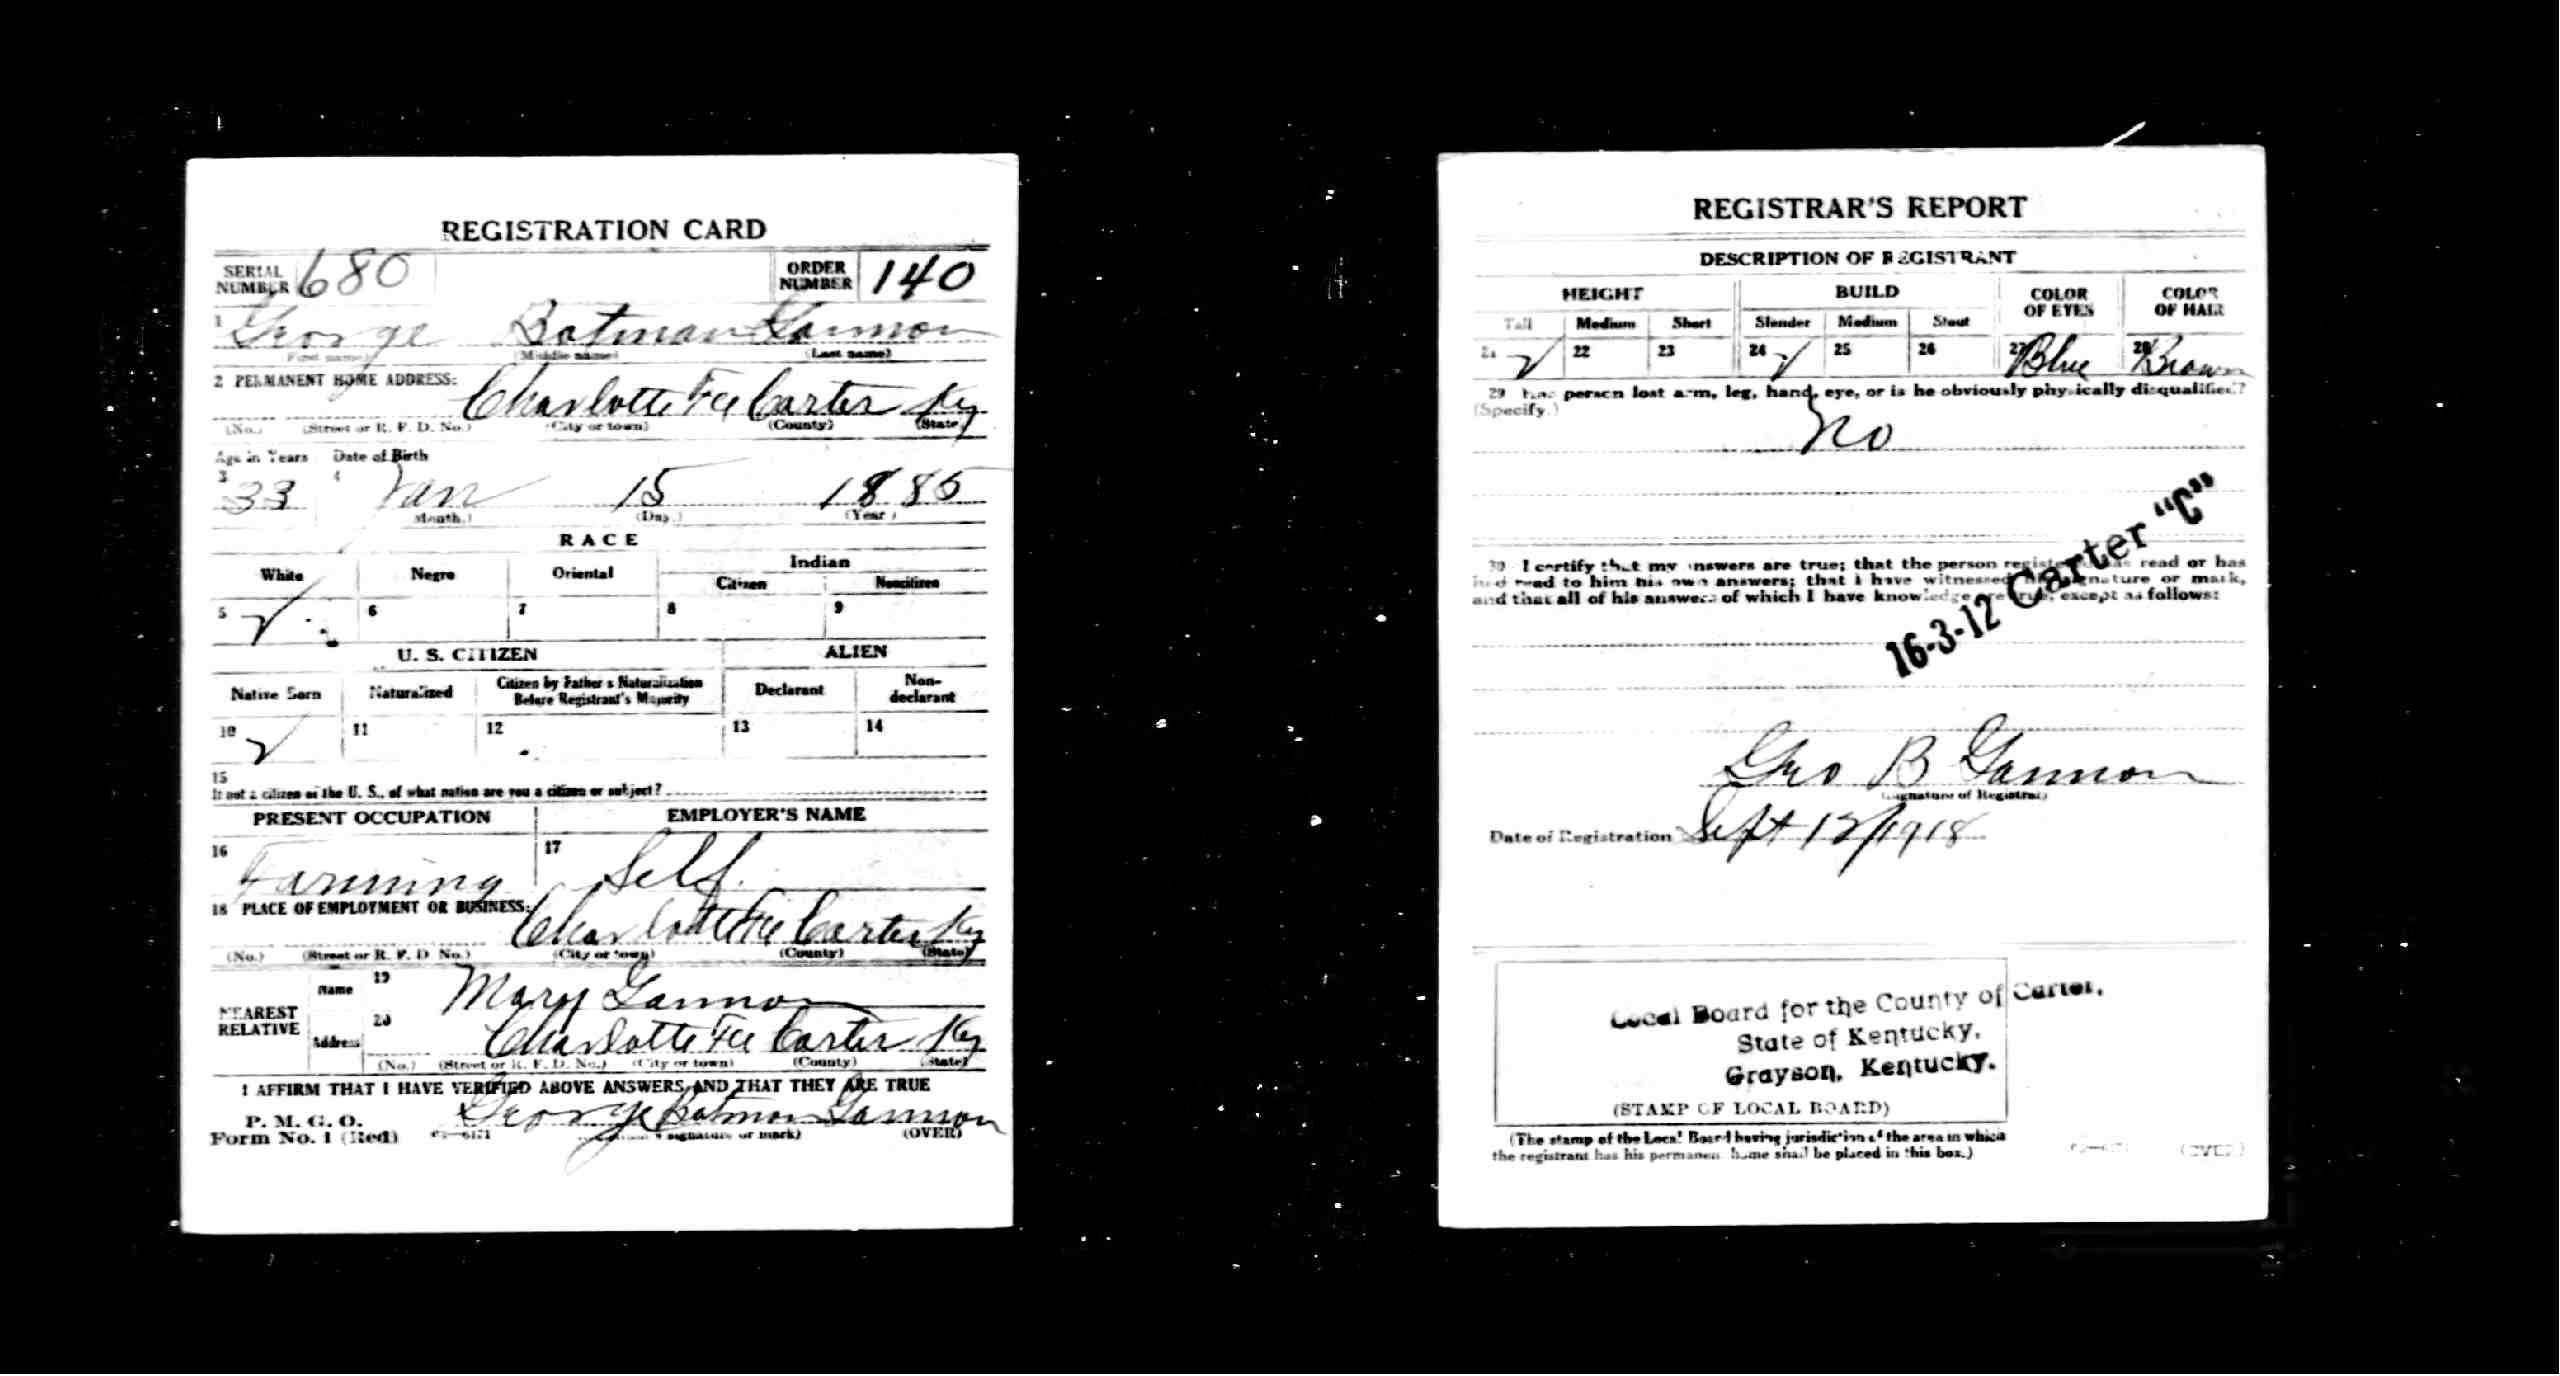 REGISTRATION CARD
SERIAL NUMBER 680 ORDER NUMBER 140
1 George Batman Gannon
(First name) (Middle name) (Last name)
2 PERMANENT HOME ADDRESS:
Charlotte Fee Carter Ky
(No.) (Street or R. F. D. No.) (City or town) (County) (State)
Age in Years Date of Birth
3 33 4 Jan 15 1885
(Month.) (Day.) (Year)
RACE
White Negro Oriental Indian
Citizen Noncitizen
5 ✓ 6 7 8 9
U. S. CITIZEN ALIEN
Native Born Naturalized Citizen by Father's Naturalization Before Registrant's Majority Declarant Non-declarant
10 ✓ 11 12 13 14
15
If not a citizen of the U. S., of what nation are you a citizen or subject?
PRESENT OCCUPATION EMPLOYER'S NAME
16 Farming 17 Self.
18 PLACE OF EMPLOYMENT OR BUSINESS:
Charlotte Fee Carter Ky
(No.) (Street or R. F. D. No.) (City or town) (County) (State)
NEAREST RELATIVE
Name 19 Mary Gannon
Address 20 Charlotte Fee Carter Ky
(No.) (Street or R. F. D. No.) (City or town) (County) (State)
I AFFIRM THAT I HAVE VERIFIED ABOVE ANSWERS AND THAT THEY ARE TRUE
P. M. G. O.
Form No. 1 (Red) George Batman Gannon
signature or mark) (OVER)
REGISTRAR'S REPORT
DESCRIPTION OF REGISTRANT
HEIGHT BUILD COLOR OF EYES COLOR OF HAIR
Tall Medium Short Slender Medium Stout
21 ✓ 22 23 24 ✓ 25 26 27 Blue 28 Brown
29 Has person lost arm, leg, hand, eye, or is he obviously physically disqualified?
(Specify.)
No
30 I certify that my answers are true; that the person registered has read or has
had read to him his own answers; that I have witnessed his signature or mark,
and that all of his answers of which I have knowledge are true, except as follows:
16-3-12 Carter "C"
Geo B Gannon
(Signature of Registrar)
Date of Registration Sept 12/1918
Local Board for the County of Carter,
State of Kentucky,
Grayson, Kentucky.
(STAMP OF LOCAL BOARD)
(The stamp of the Local Board having jurisdiction of the area in which
the registrant has his permanent home shall be placed in this box.)
(OVER)